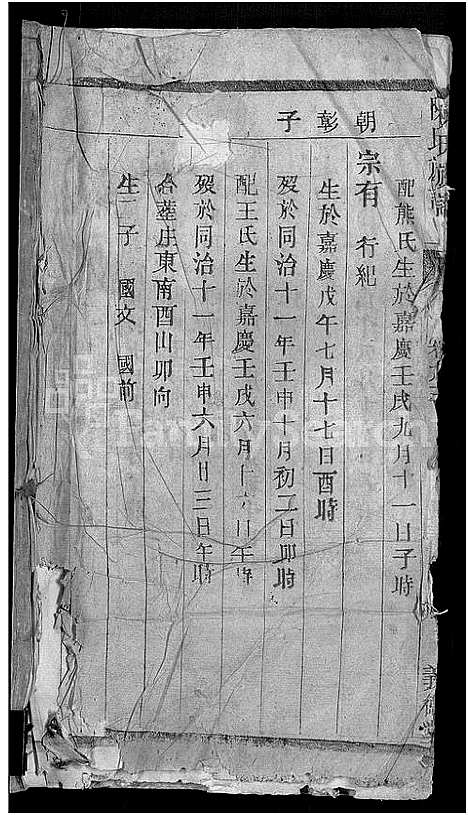 陳氏族譜
義衛堂
配熊氏生於嘉慶壬戌九月十一日子時
朝彰子
宗有 行紀
生於嘉慶戊午七月十七日酉時
歿於同治十一年壬申十月初二日卯時
配王氏生於嘉慶壬戌六月十六日午時
歿於同治十一年壬申六月廿三日午時
合葬庄東南酉山卯向
生二子 國文 國前